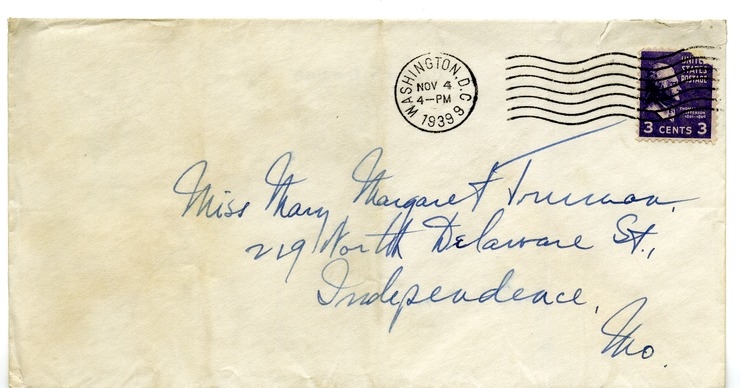 WASHINGTON, D.C. 9
NOV 4
4-PM
1939
UNITED
STATES
POSTAGE
THOMAS
JEFFERSON
1801-1809
3 CENTS 3
Miss Mary Margaret Truman,
219 North Delaware St.,
Independence,
Mo.